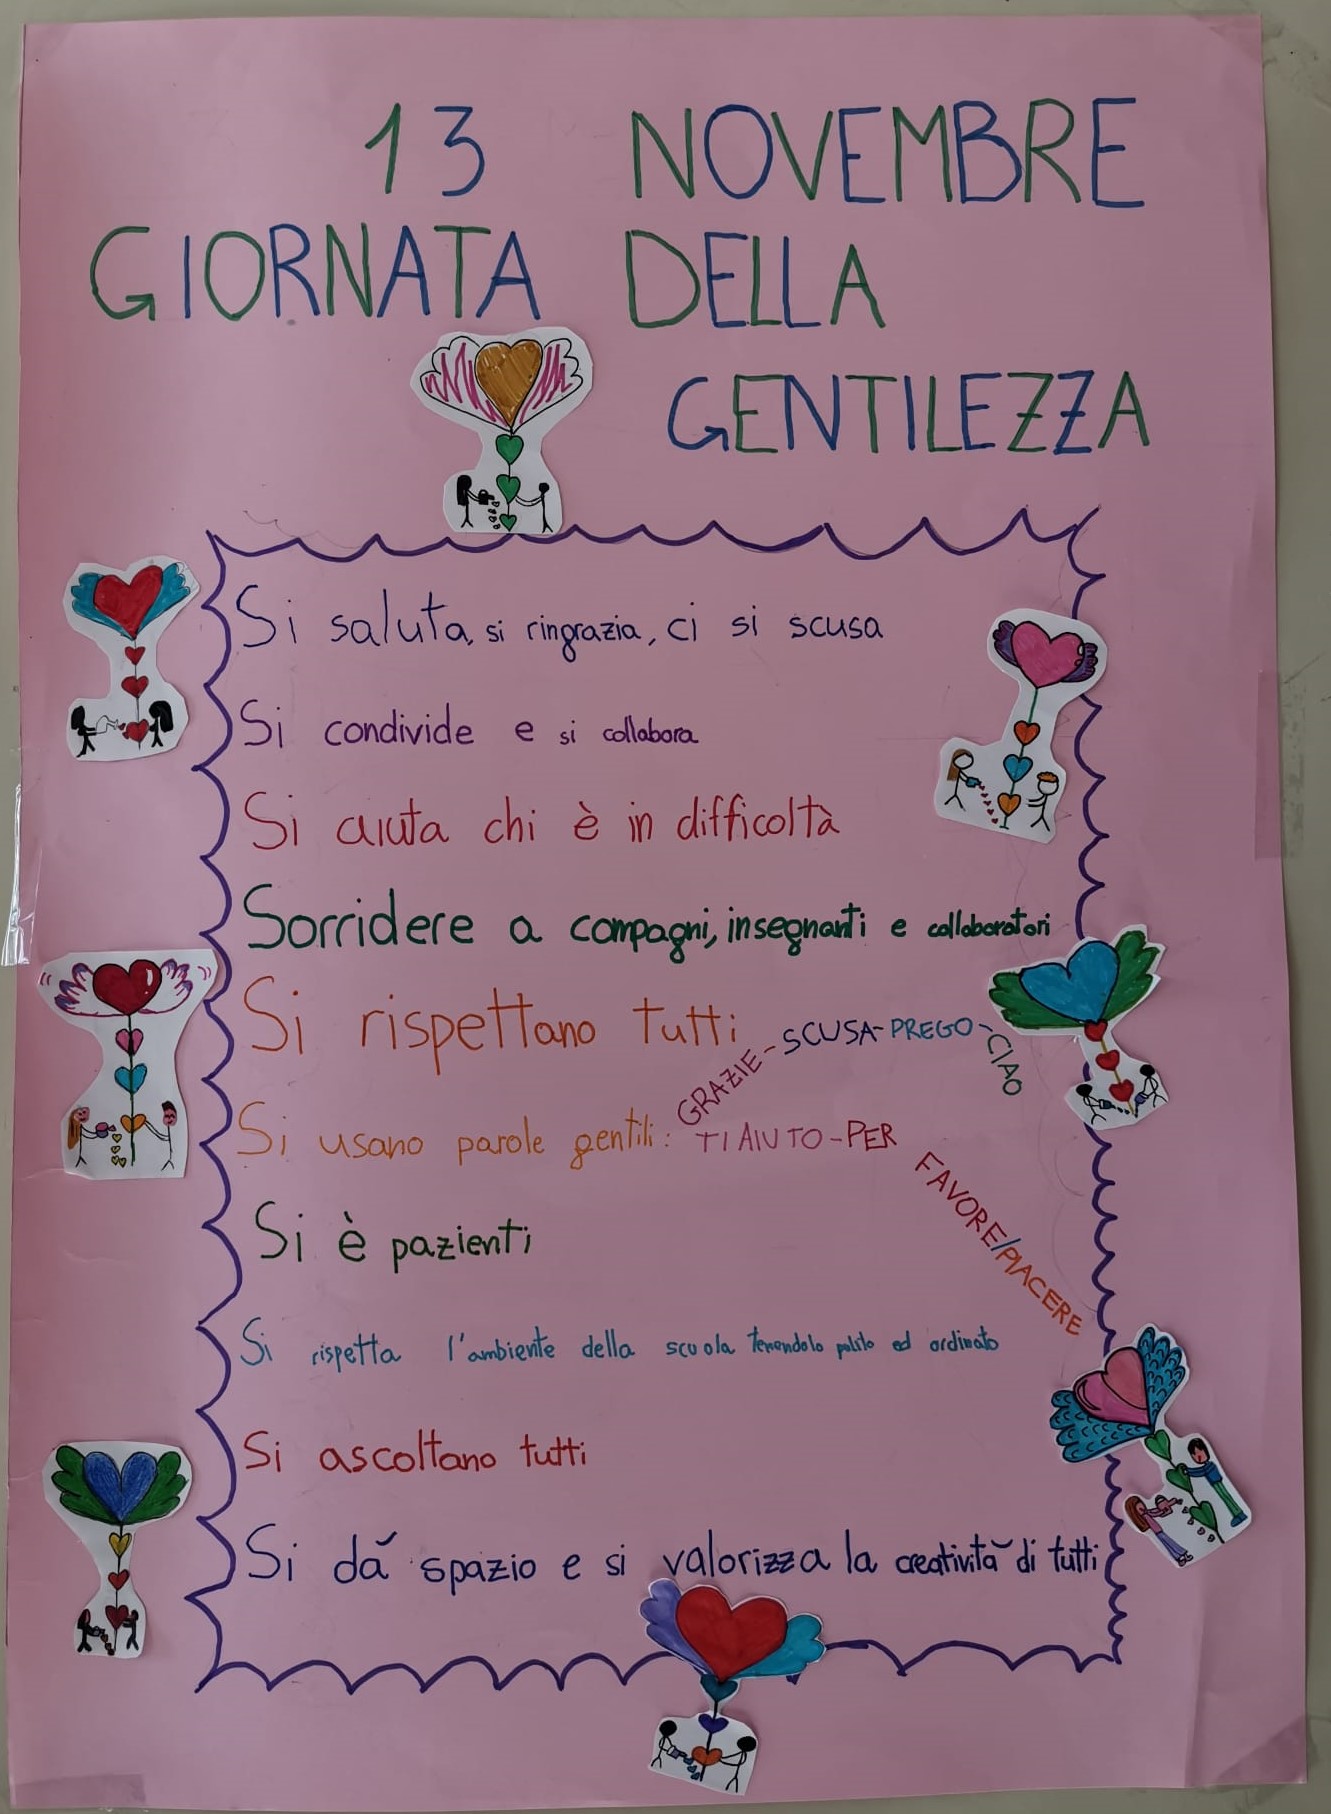 13 NOVEMBRE
GIORNATA DELLA
GENTILEZZA
Si saluta, si ringrazia, ci si scusa
Si condivide e si collabora
Si aiuta chi è in difficoltà
Sorridere a compagni, insegnanti e collaboratori
Si rispettano tutti
Si usano parole gentili: GRAZIE-SCUSA-PREGO-CIAO
TI AIUTO-PER FAVORE/PIACERE
Si è pazienti
Si rispetta l'ambiente della scuola tenendolo pulito ed ordinato
Si ascoltano tutti
Si dá spazio e si valorizza la creatività di tutti